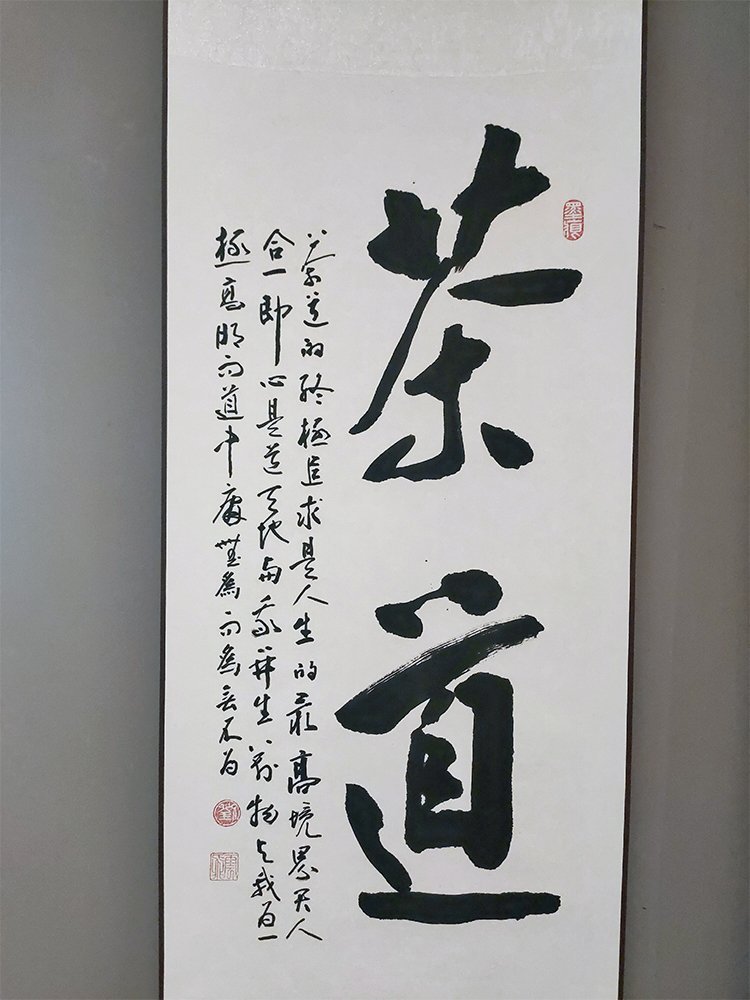 茶道
茶道的終極追求是人生的最高境界天人
合一即心是道天地與我并生萬物與我為一
極高明而道中庸無為而為無不為